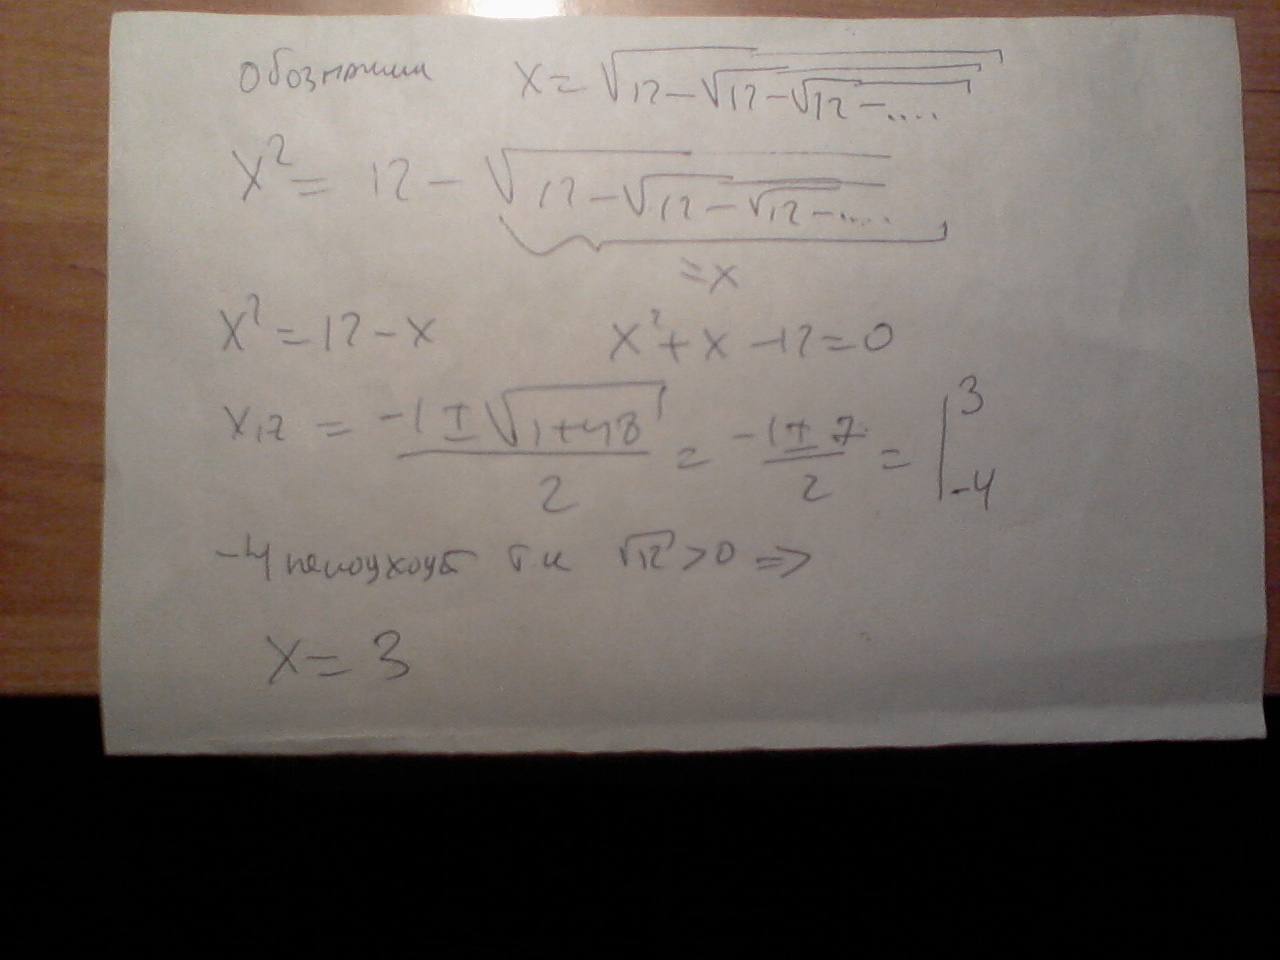 Обозначим x = √(12 − √(12 − √(12 − ....
x² = 12 − √(12 − √(12 − √(12 − ....
= x
x² = 12 − x x² + x − 12 = 0
x₁,₂ = (−1 ± √(1+48))/2 = (−1 ± 7)/2 = | 3 −4
−4 не подходит т.к √12 > 0 ⇒
x = 3